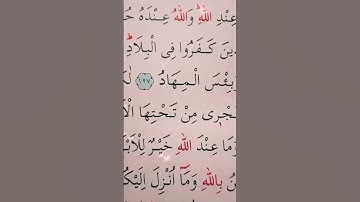 عِنْدِ اللّٰهِ وَاللّٰهُ عِنْدَهُ
كَفَرُوا فِى الْبِلَادِ
بِئْسَ الْمِهَادُ ١٩٧
تَجْرٖى مِنْ تَحْتِهَا
مَا عِنْدَ اللّٰهِ خَيْرٌ لِلْاَبْ
بِاللّٰهِ وَمَٓا اُنْزِلَ اِلَيْكُ